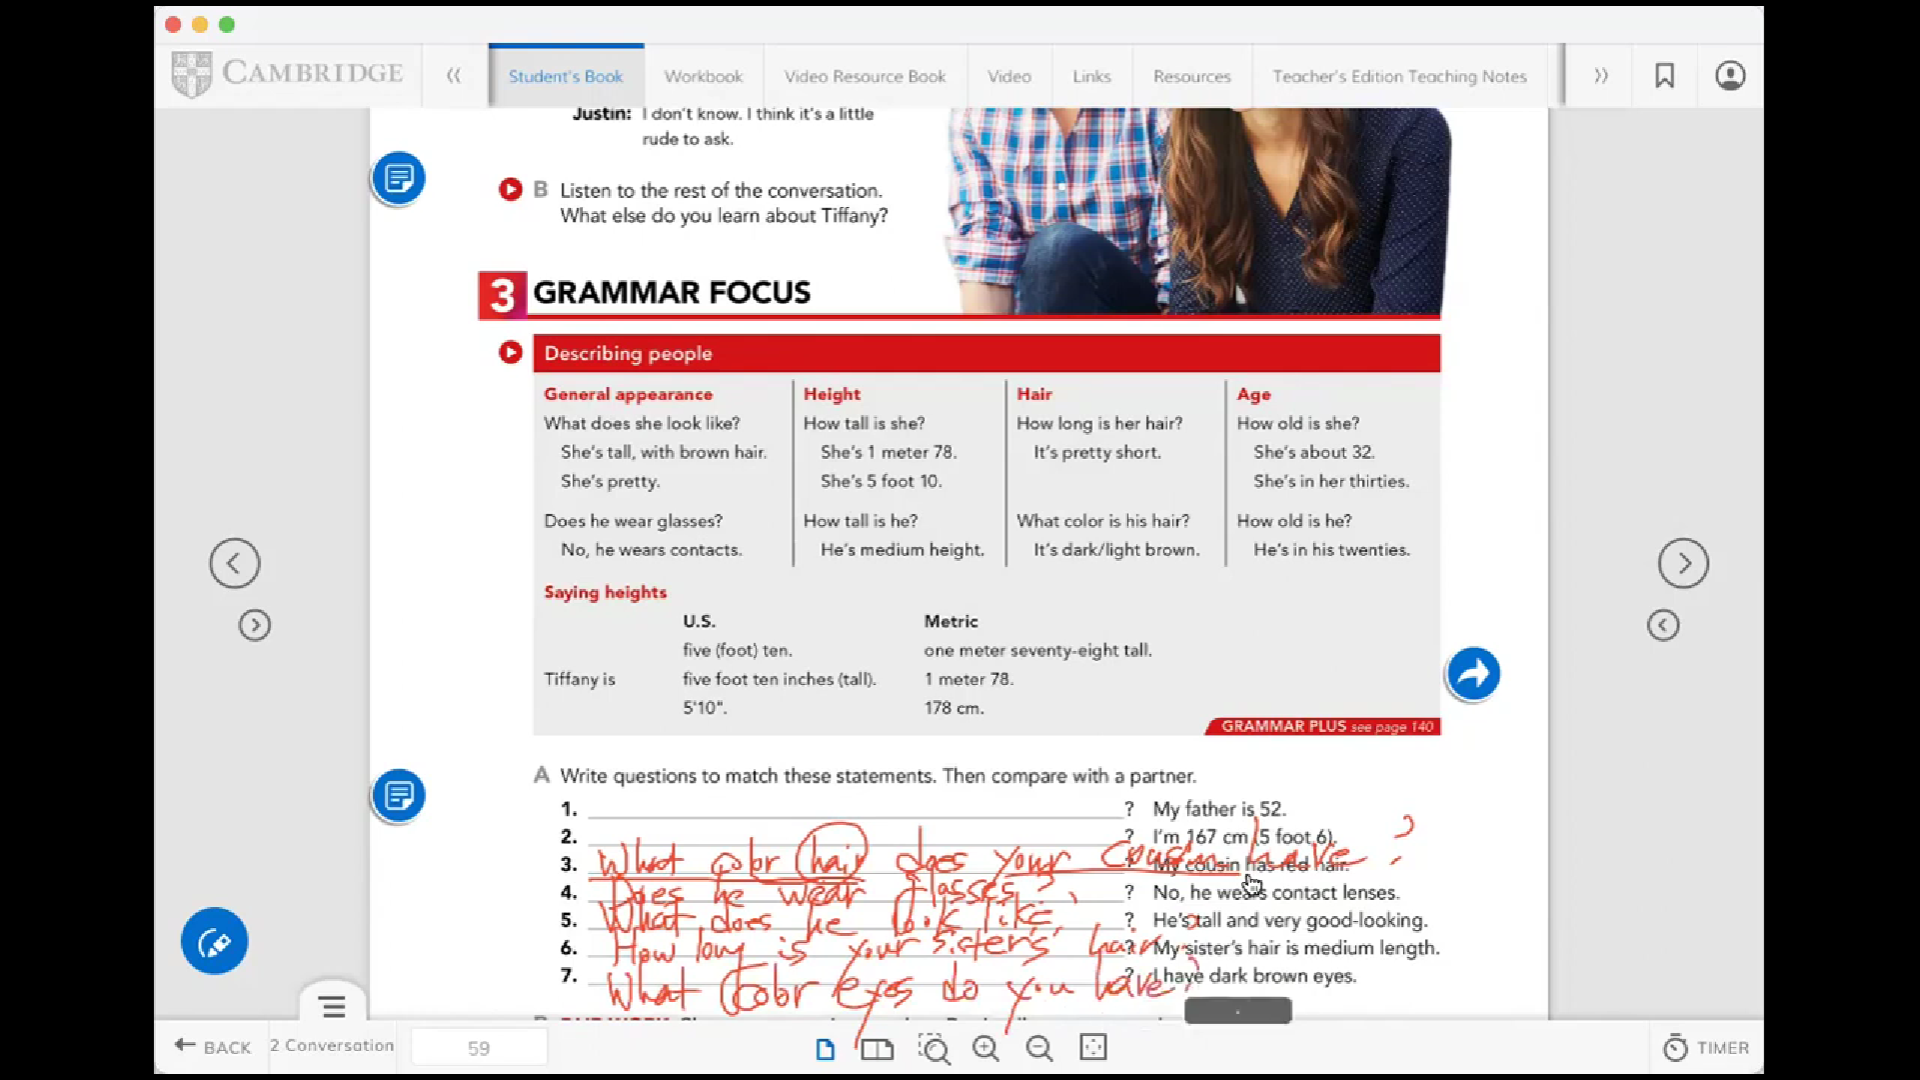 CAMBRIDGE
Student's Book
Workbook
Video Resource Book
Video
Links
Resources
Teacher's Edition Teaching Notes
Justin: I don't know. I think it's a little
rude to ask.
B Listen to the rest of the conversation.
What else do you learn about Tiffany?
3 GRAMMAR FOCUS
Describing people
General appearance
What does she look like?
She's tall, with brown hair.
She's pretty.
Does he wear glasses?
No, he wears contacts.
Height
How tall is she?
She's 1 meter 78.
She's 5 foot 10.
How tall is he?
He's medium height.
Hair
How long is her hair?
It's pretty short.
What color is his hair?
It's dark/light brown.
Age
How old is she?
She's about 32.
She's in her thirties.
How old is he?
He's in his twenties.
Saying heights
U.S. Metric
five (foot) ten. one meter seventy-eight tall.
Tiffany is five foot ten inches (tall). 1 meter 78.
5'10". 178 cm.
GRAMMAR PLUS see page 140
A Write questions to match these statements. Then compare with a partner.
1. ? My father is 52.
2. ? I'm 167 cm (5 foot 6).
3. What color hair does your cousin have ? ? My cousin has red hair.
4. Does he wear glasses ? No, he wears contact lenses.
5. What does he look like ? He's tall and very good-looking.
6. How long is your sister's hair ? My sister's hair is medium length.
7. What color eyes do you have ? I have dark brown eyes.
BACK
2 Conversation
59
TIMER